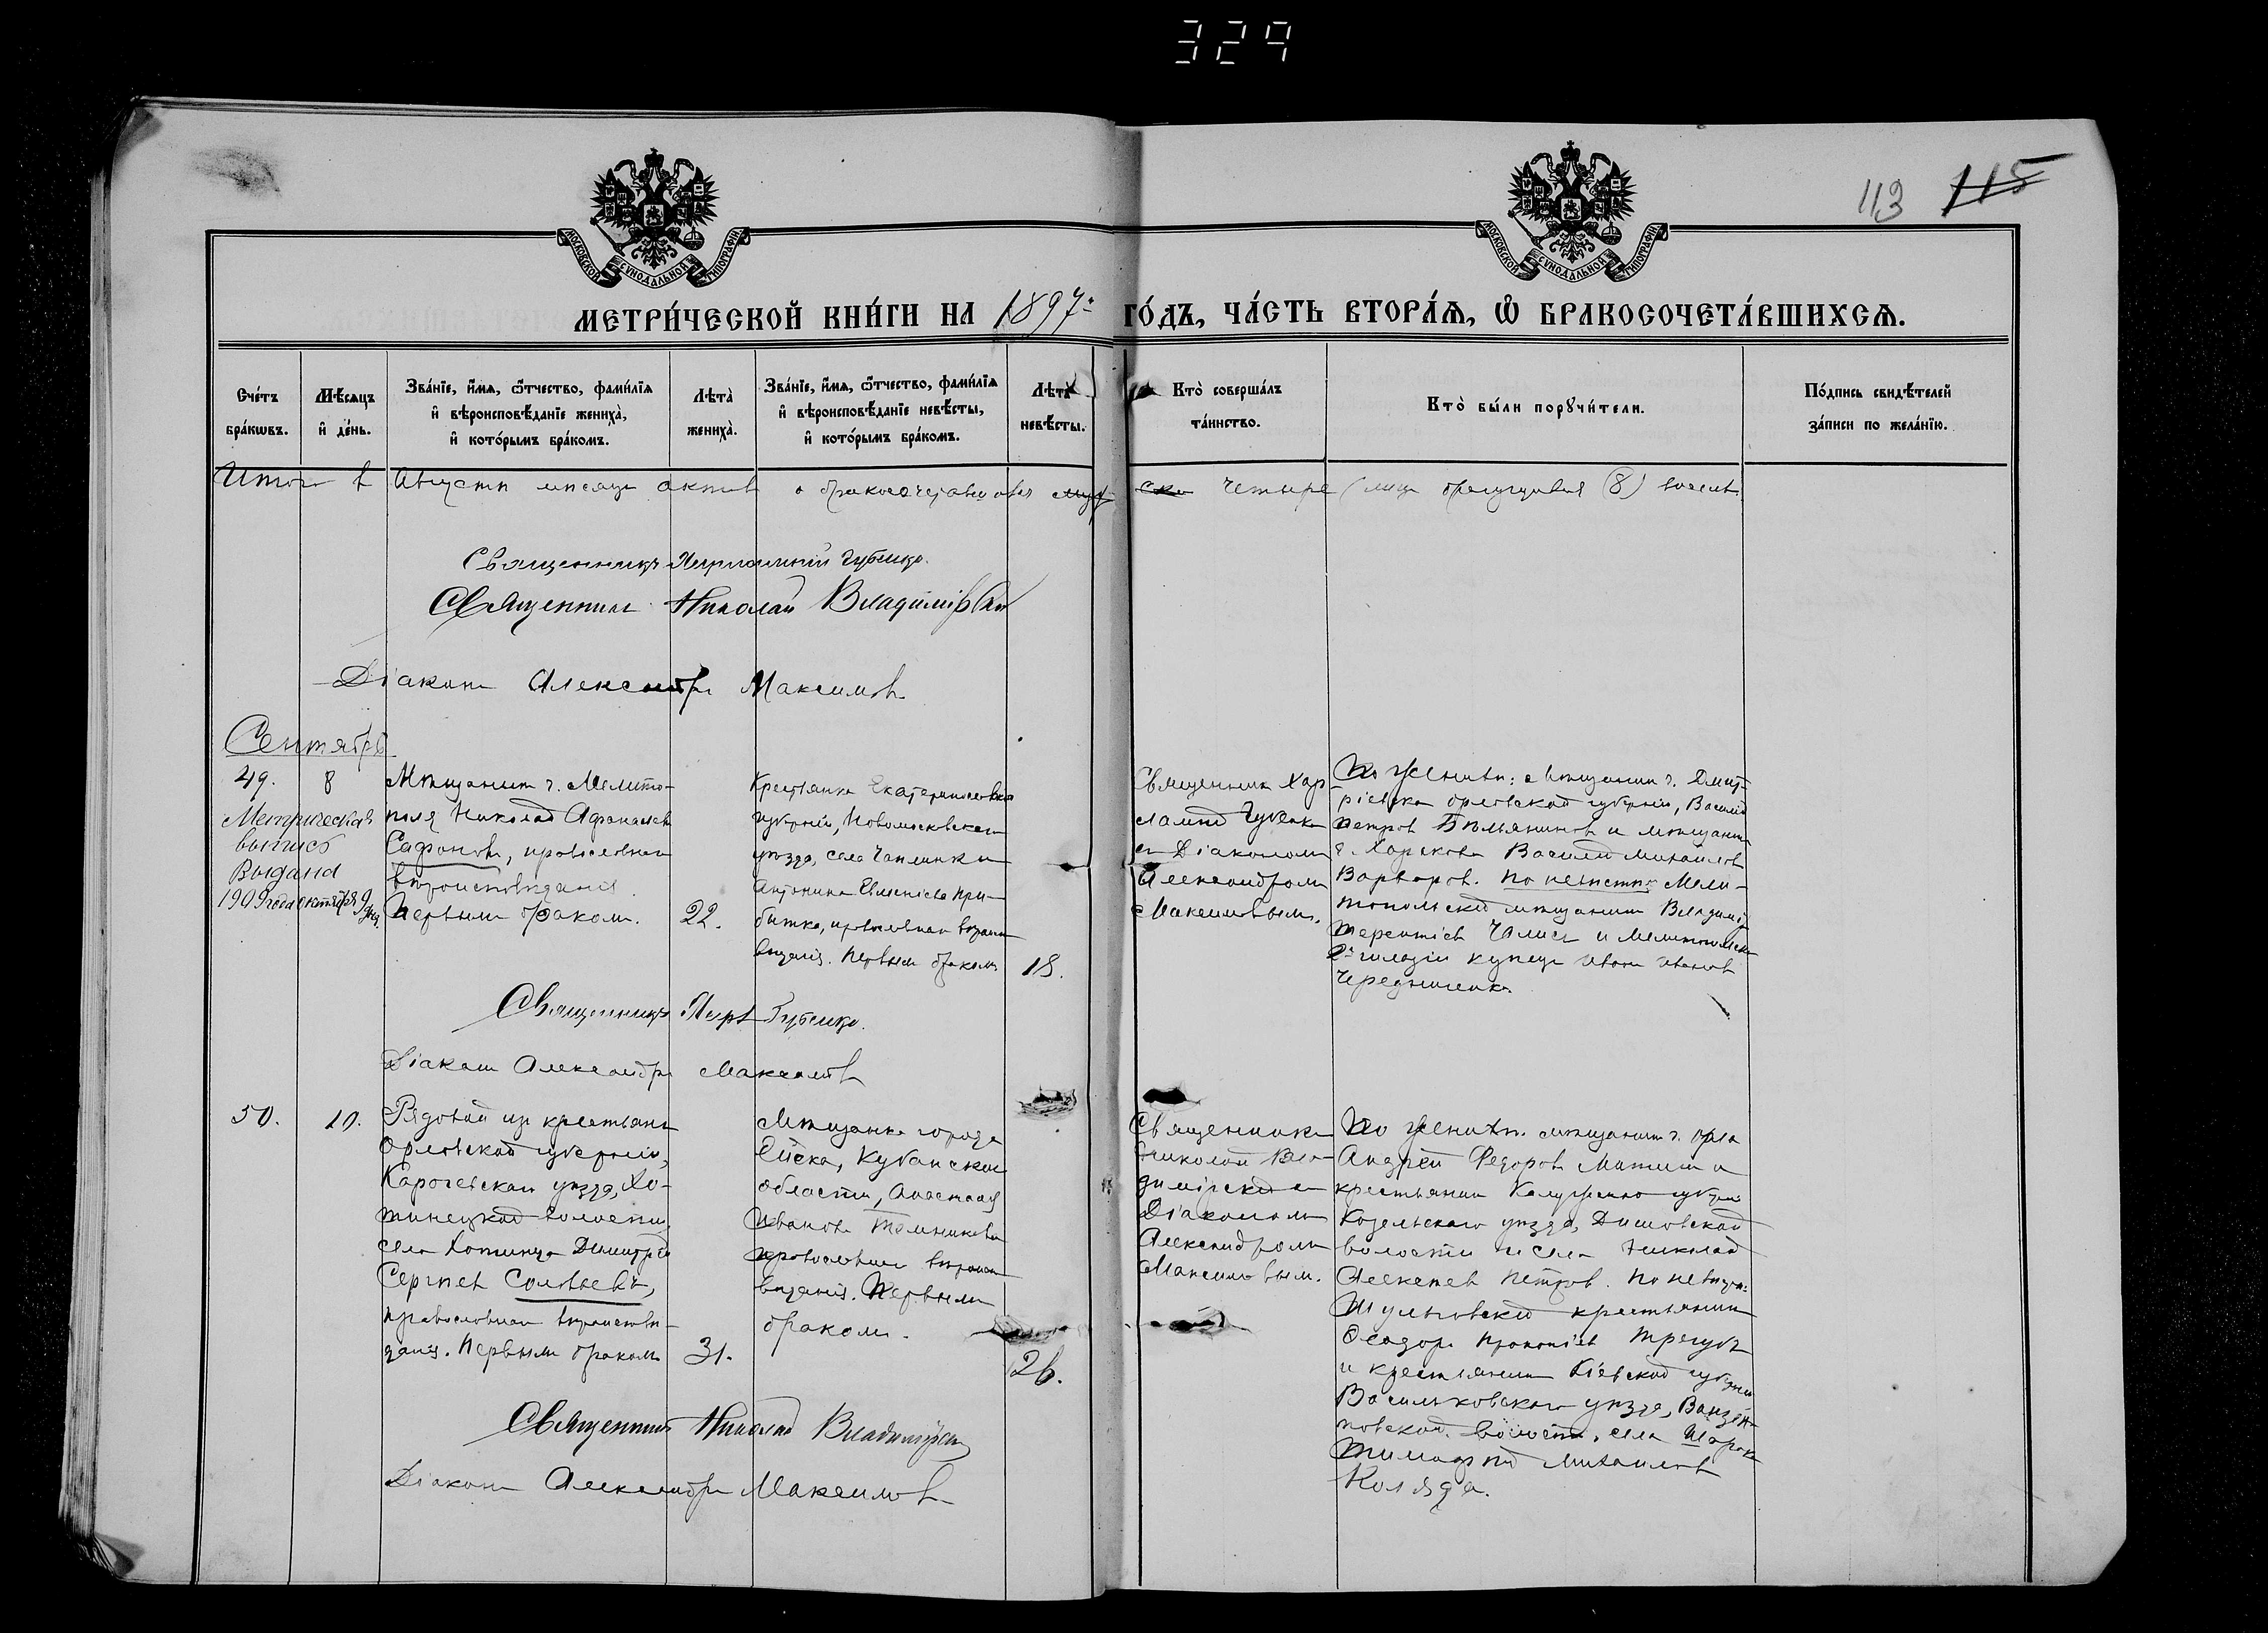 329
113 115
МОСКОВСКОЙ СѴНОДАЛЬНОЙ ТИПОГРАФІИ
МОСКОВСКОЙ СѴНОДАЛЬНОЙ ТИПОГРАФІИ
МЕТРИ́ЧЕСКОЙ КНИ́ГИ НА 1897 ГО́ДЪ, ЧА́СТЬ ВТОРА́Я, Ѡ҆ БРАКОСОЧЕТА́ВШИХСЯ.
Сче́тъ
бра́кѡвъ.
Мѣ́сяцъ
и҆ де́нь.
Зва́нїе, и҆́мя, ѻ҆́тчество, фами́лїя
и҆ вѣроисповѣ́данїе жениха̀,
и҆ кото́рымъ бра́комъ.
Лѣта̀
жениха̀.
Зва́нїе, и҆́мя, ѻ҆́тчество, фами́лїя
и҆ вѣроисповѣ́данїе невѣ́сты,
и҆ кото́рымъ бра́комъ.
Лѣта̀
невѣ́сты.
Кто̀ соверша́лъ
та́инство.
Кто̀ бы́ли порꙋчи́тели.
По́дпись свидѣ́телей
за́писи по жела́нїю.
Итого в Августѣ мѣсяцѣ актов о бракосочетавшихся четыре (лиц (8) восемь
Священникъ Харлампий Губенко.
Священникъ Николай Владимірскій
Діаконъ Александръ Максимовъ
Сентябрь
49.
8
Метрическая
выпись
Выдана
1909 года октября 9 дня.
Мѣщанинъ г. Мелито-
поля Николай Афанасьев
Сафоновъ, православнаго
вѣроисповѣданія.
Первымъ бракомъ.
22.
Крестьянка Екатеринославской
губерніи, Новомосковскаго
уѣзда, села Чаплинки
Антонина Евменіева При-
битко, православнаго вѣроиспо-
вѣданія. Первымъ бракомъ
18.
Священникъ Хар-
лампій Губенко
съ Діакономъ
Александромъ
Максимовымъ.
По женихѣ: мѣщанинъ г. Дмит-
ріевска орловской губерніи, Василій
Петров и мѣщанинъ
г. Харькова Василій Михайлов
Варваров. По невѣстѣ Мели-
топольскій мѣщанинъ Владиміръ
Терентіев и Мелитопольскій
2й гильдіи купецъ Иванъ Ивановъ
Чередниченко.
Священникъ Харл. Губенко.
Діаконъ Александръ Максимовъ
50.
10.
Рядовой изъ крестьянъ
Орловской губерніи,
Карачевскаго уѣзда, Хо-
тинецкой волости,
села Хотинца Димитрій
Сергѣев Соловьевъ,
православнаго вѣроисповѣ-
данія. Первымъ бракомъ
31.
Мѣщанка города
Ейска, Кубанской
области, Анастасія
Иванова
православнаго вѣроиспо-
вѣданія. Первымъ
бракомъ.
26.
Священникъ
Николай Вла-
димірскій съ
Діакономъ
Александромъ
Максимовым.
По женихѣ: мѣщанинъ г. Орла
Андрей Федоровъ и
крестьянинъ Калужской губерніи
Козельскаго уѣзда,
волости и села Николай
Алексѣев Петров. По невѣстѣ:
крестьянинъ
Ѳеодоръ Прокопіев Трегубъ
и крестьянинъ Кіевской губерніи
Васильковскаго уѣзда,
волости, села
Тимофей Михайлов
Коляда.
Священникъ Николай Владимірскій
Діаконъ Александръ Максимовъ